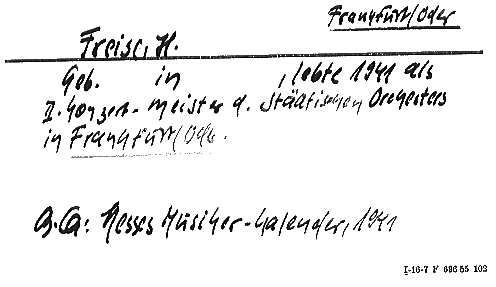 Frankfurt/Oder
Freise, H.
Geb. in , lebte 1941 als
II. Konzert-Meister d. Städtischen Orchesters
in Frankfurt/Oder.
Hesses Musiker-Kalender, 1941
I-16-7 F 696 55 102